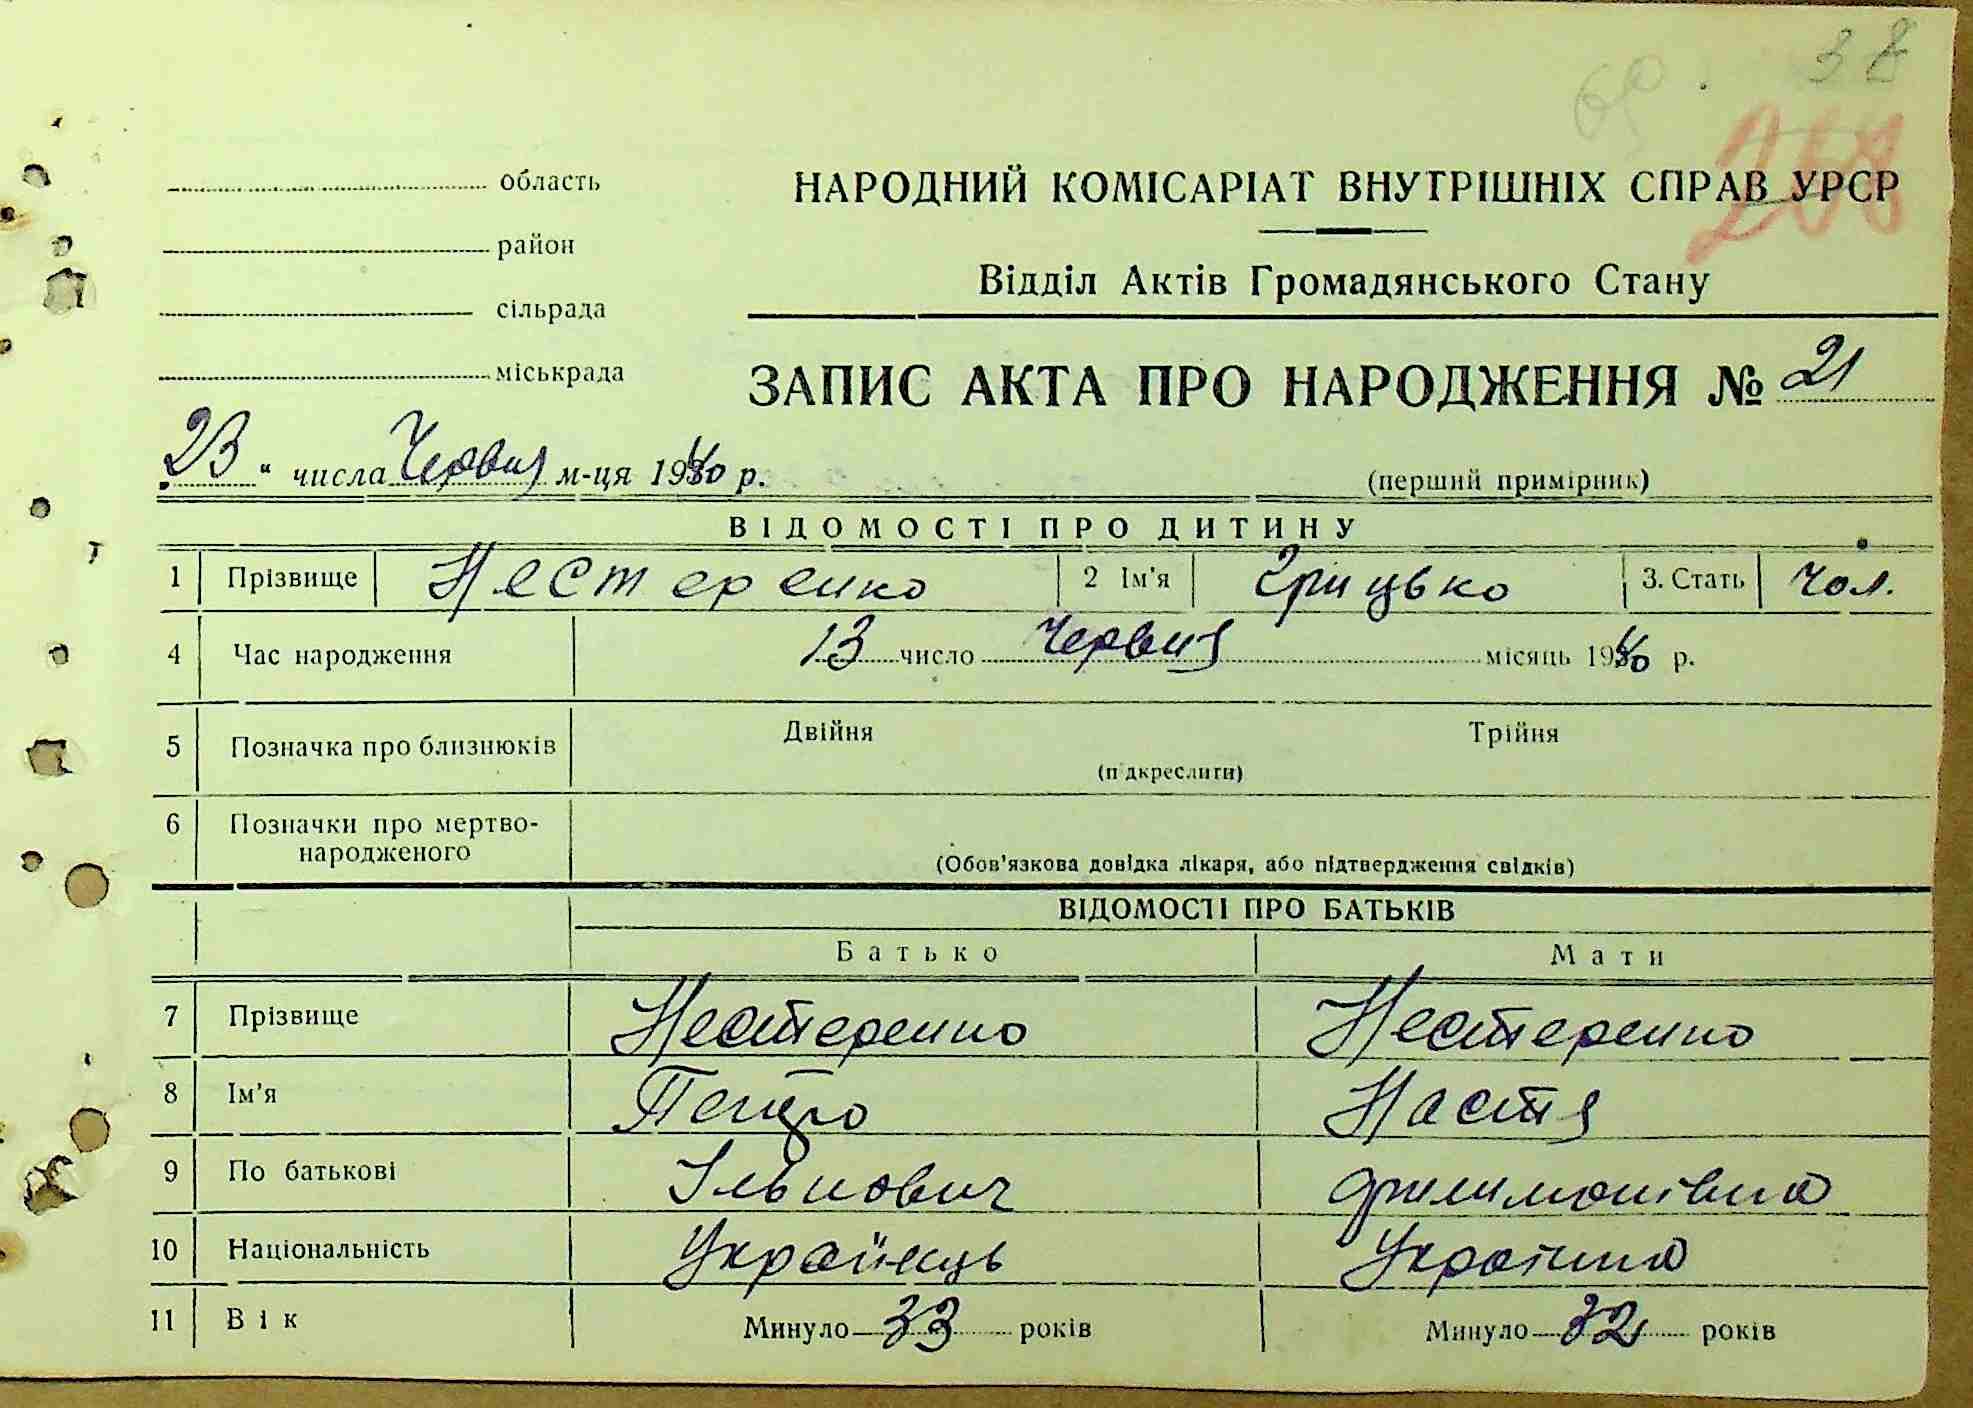 38
208
область
НАРОДНИЙ КОМІСАРІАТ ВНУТРІШНІХ СПРАВ УРСР
район
Відділ Актів Громадянського Стану
сільрада
міськрада
ЗАПИС АКТА ПРО НАРОДЖЕННЯ № 21
23 " числа Червня м-ця 1940 р.
(перший примірник)
ВІДОМОСТІ ПРО ДИТИНУ
1 Прізвище Нестеренко 2 Ім'я Грицько 3. Стать Чол.
4 Час народження 13 число Червня місяць 1940 р.
5 Позначка про близнюків Двійня Трійня
(підкреслити)
6 Позначки про мертво-
народженого
(Обов'язкова довідка лікаря, або підтвердження свідків)
ВІДОМОСТІ ПРО БАТЬКІВ
Батько Мати
7 Прізвище Нестеренко Нестеренко
8 Ім'я Петро Настя
9 По батькові Ількович Филимонівна
10 Національність Українець Українка
11 Вік Минуло 33 років Минуло 32 років